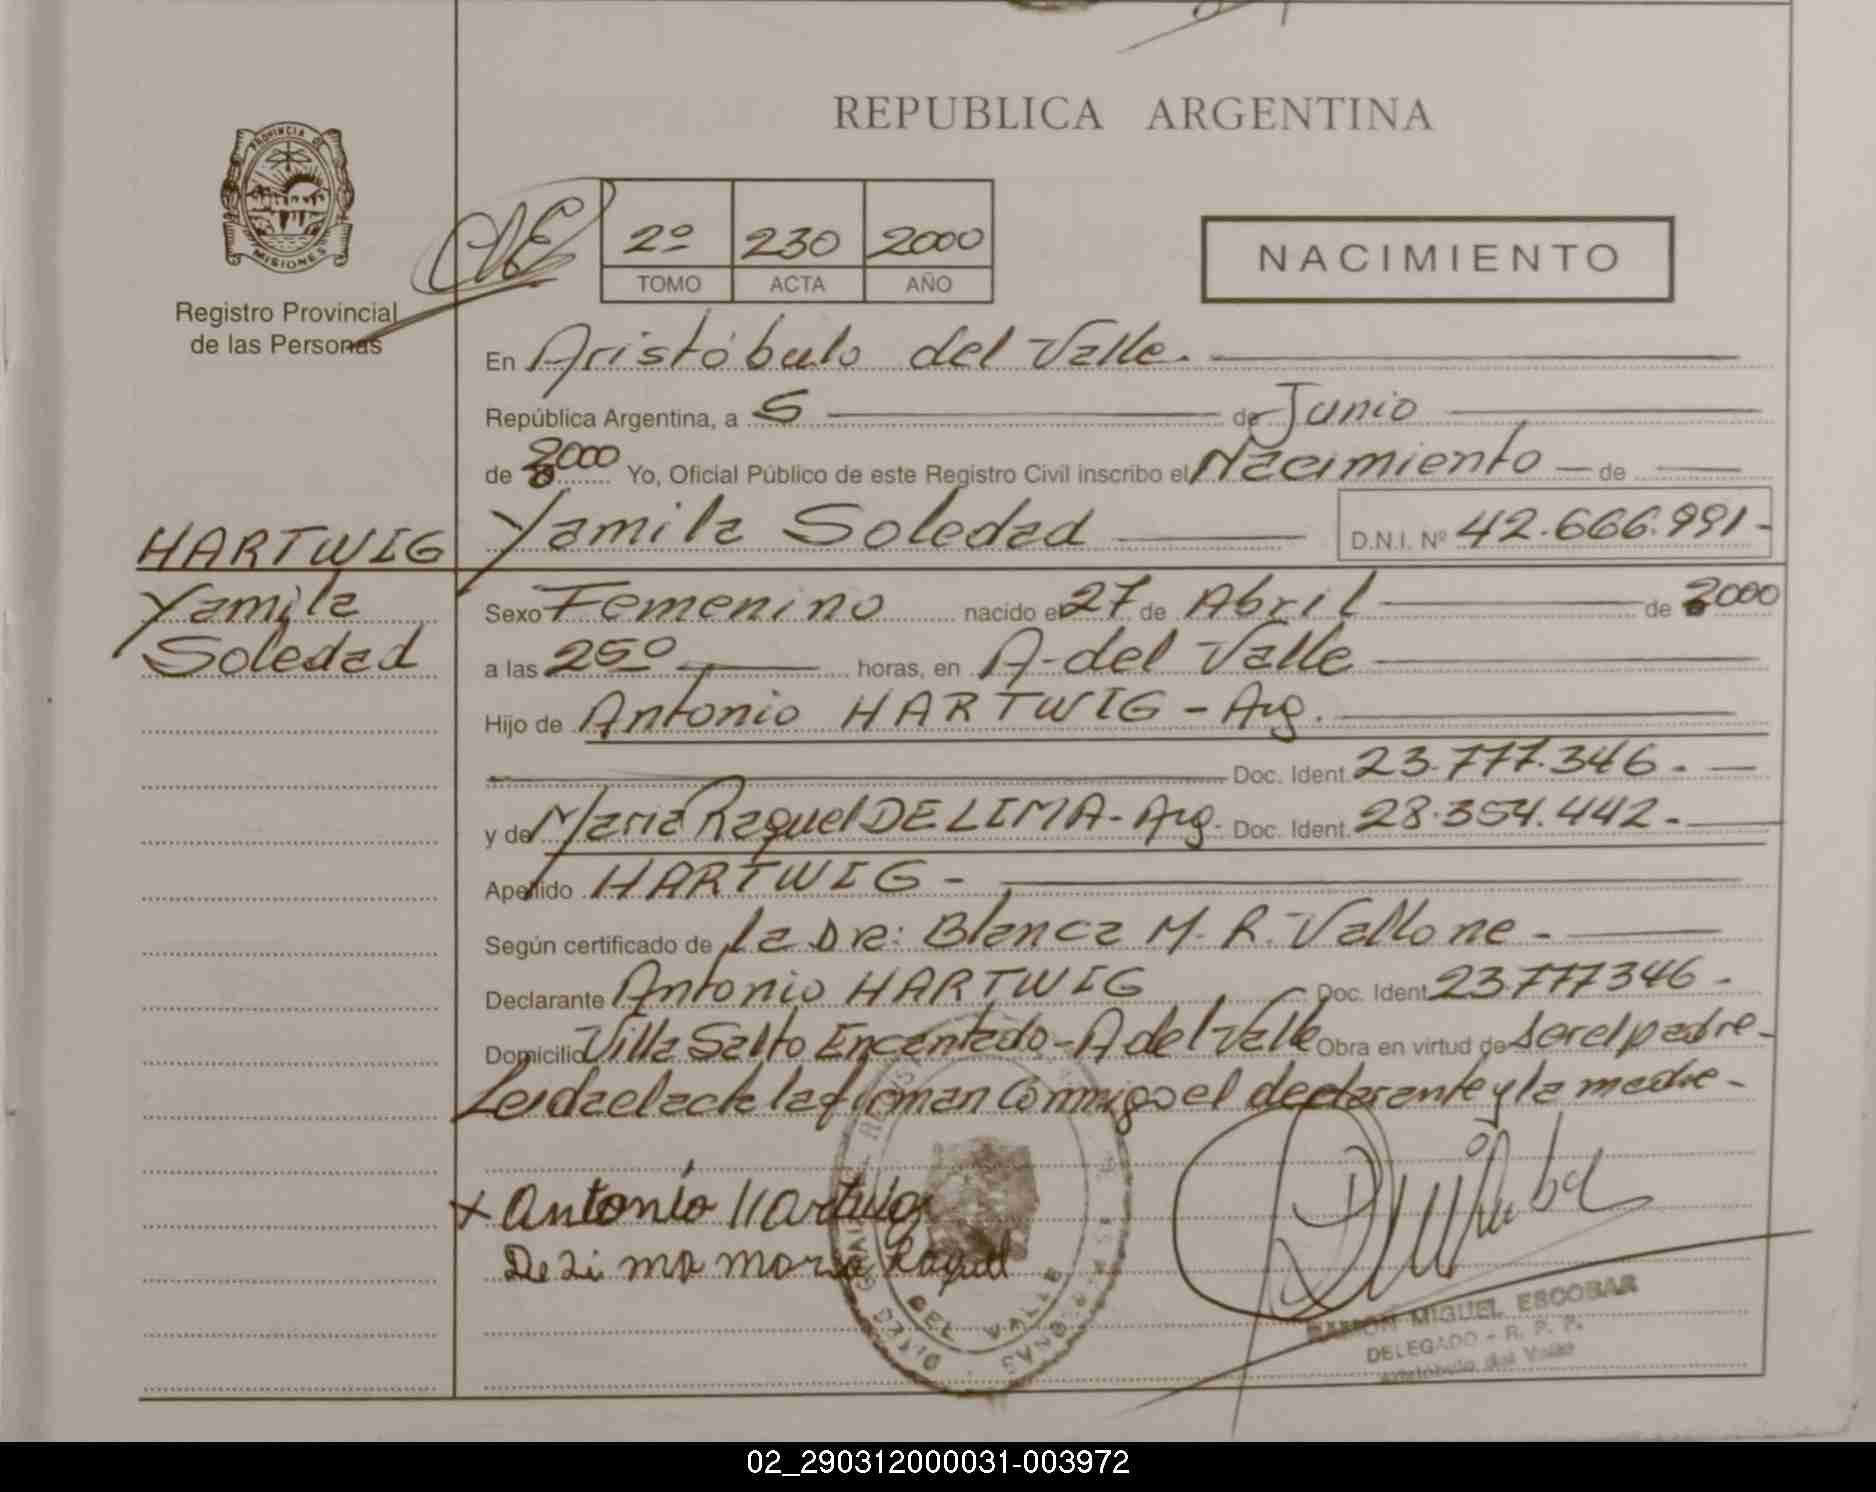 REPUBLICA ARGENTINA
PROVINCIA DE
MISIONES
Registro Provincial
de las Personas
2º 230 2000
TOMO ACTA AÑO
NACIMIENTO
En Aristóbulo del Valle.
República Argentina, a 5 de Junio
de 2000 Yo, Oficial Público de este Registro Civil inscribo el Nacimiento de
HARTWIG Yamila Soledad D.N.I. Nº 42.666.991-
Yamila Sexo Femenino nacido el 27 de Abril de 2000
Soledad a las horas, en A-del Valle
Hijo de Antonio HARTWIG - Arg.
Doc. Ident. 23.777.346.
y de Maria Raquel DE LIMA - Arg. Doc. Ident. 28.354.442.
Apellido HARTWIG -
Según certificado de la Dra: Blanca M. R. Vallone -
Declarante Antonio HARTWIG Doc. Ident. 23777346 -
Domicilio Villa Salto Encantado - A del Valle Obra en virtud de ser el padre -
Leida el acta la firman Conmigo el declarante y la madre -
x Antonio Hartwig
De Li ma maria Raquel
DEL VALLE
RAMON MIGUEL ESCOBAR
DELEGADO - R. P. P.
Aristóbulo del Valle
02_290312000031-003972